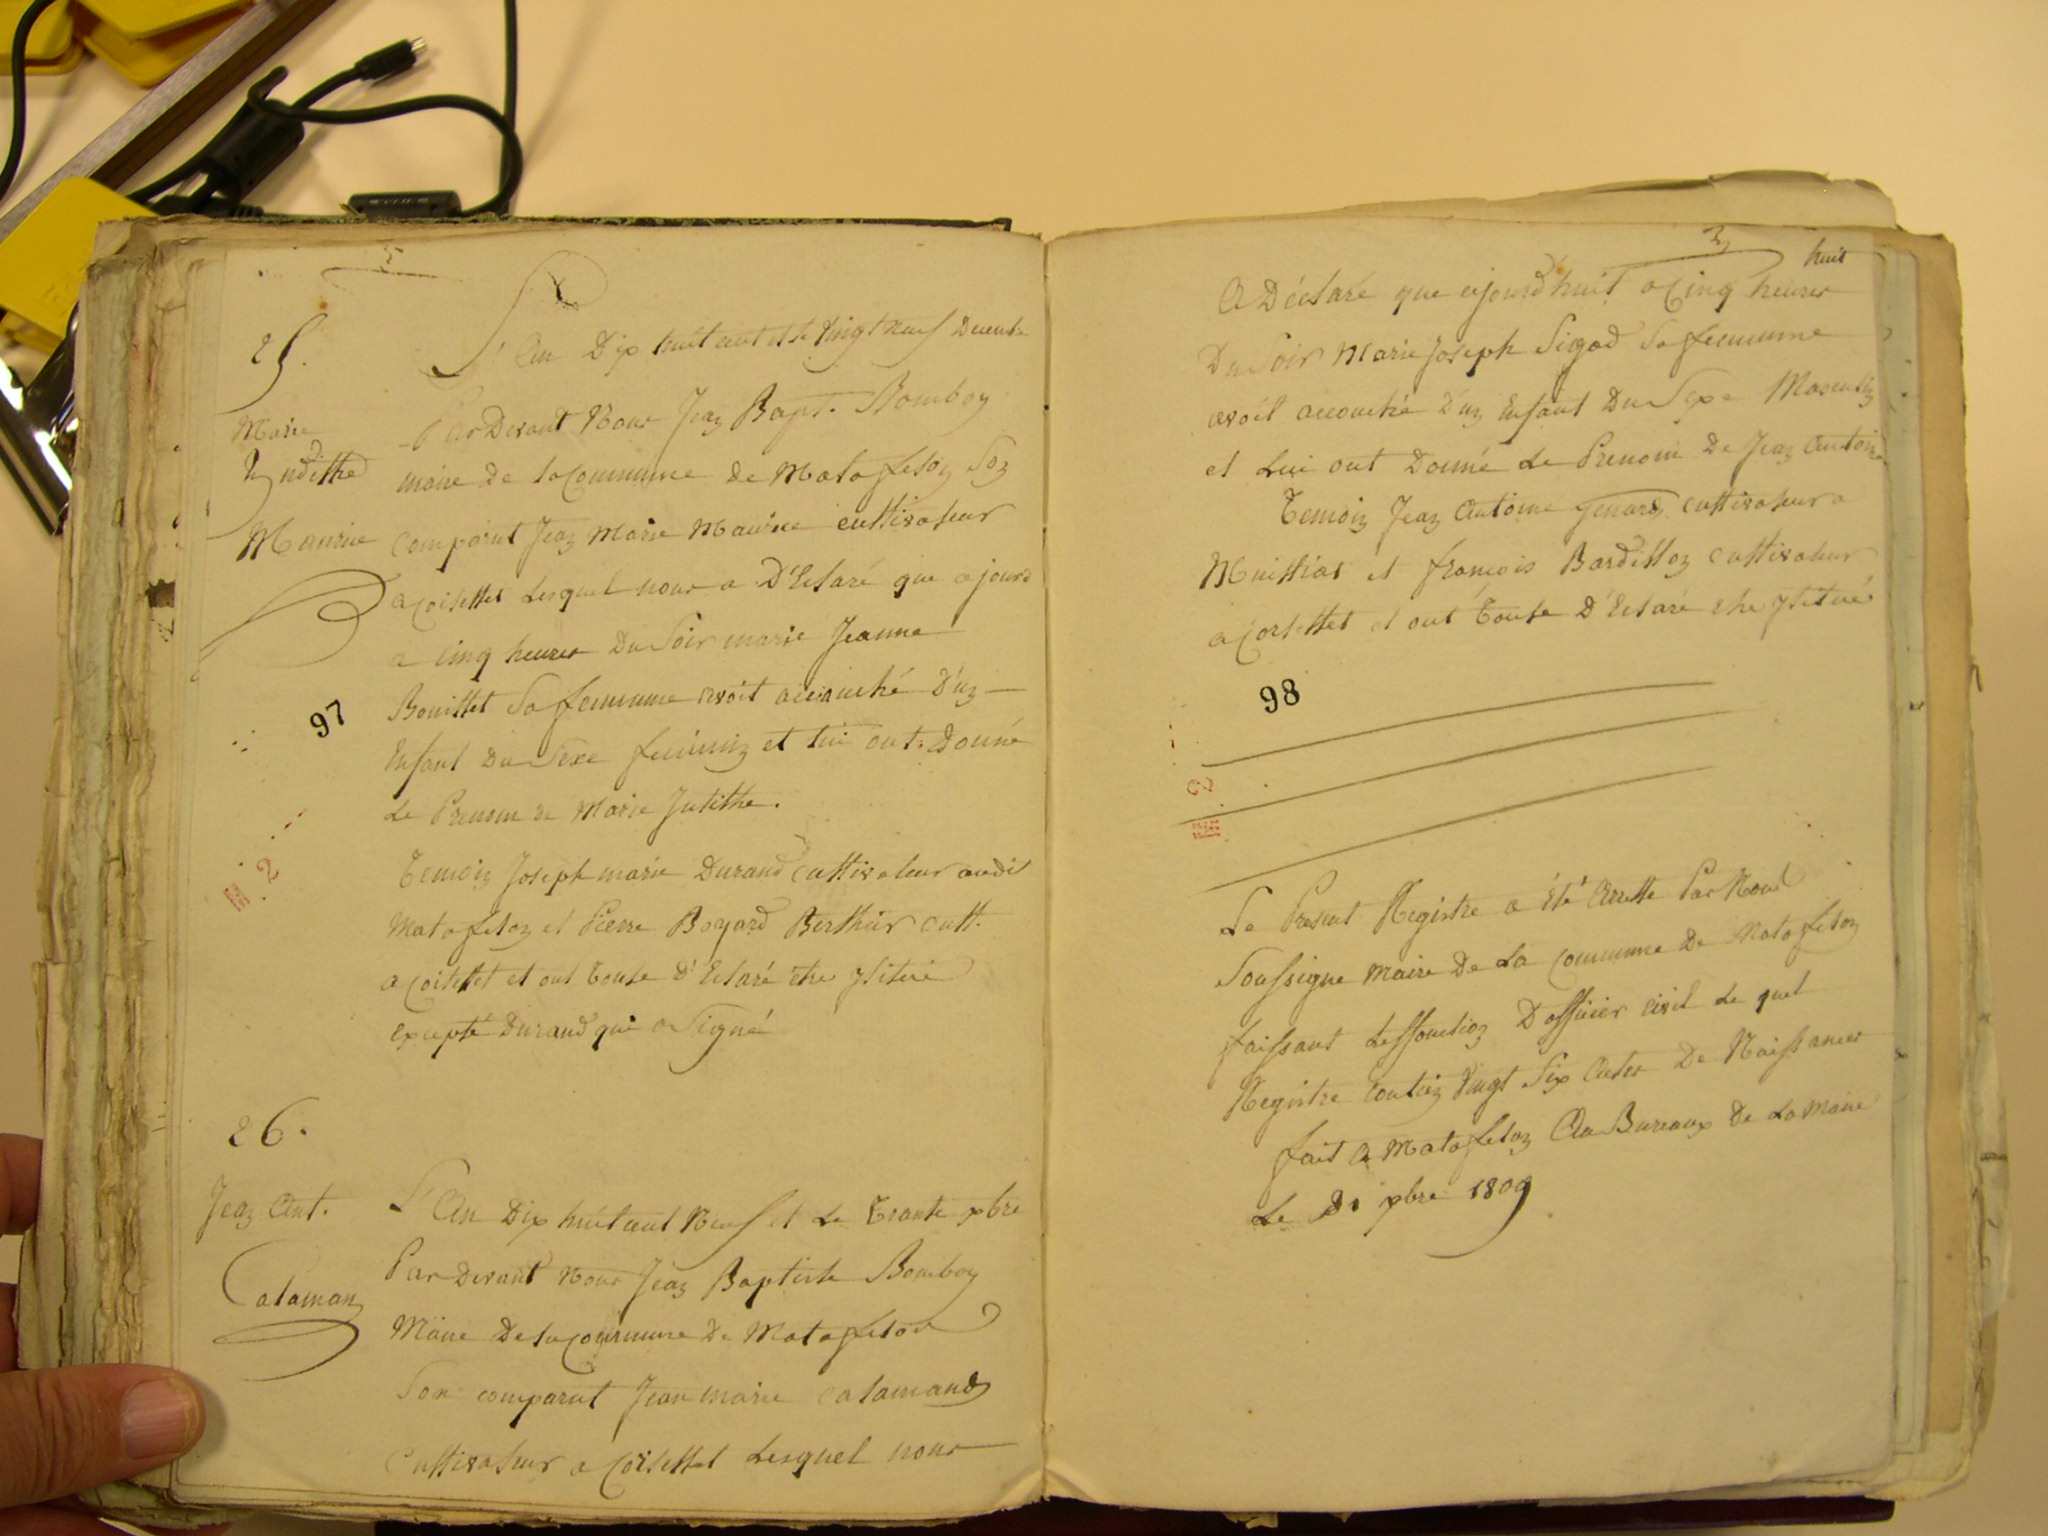 25.
Marie
Yndithe
Maurine
L'An Dix huit cent et le Vingt neuf Decembre
Par Devant Nous Jean Bapt. Bomboy
maire de la Commune de Matafelon Son
comparut Jean Marie Maurine cultivateur
a Coisellet Lesquel nous a D'Eclaré que ajourd
a cinq heures Du Soir marie Jeanne
Bouillet Sa femmme avoit accouché D'un
Enfant Du Sexe feminin et lui ont Donné
Le Prenom de Marie Jutithe.
Temoin Joseph marie Durand cultivateur audit
Matafelon et Pierre Boyard Berthier cult.
a Coisellet et ont Toute D'Eclaré etre ylitéré
Excepté Durand qui a Signé
97
26.
Jean Ant.
Calaman
L'An Dix huit cent Neuf et Le Trante xbre
Par Devant Nous Jean Baptiste Bomboy
Maire De la Commune De Matafelon
Son comparut Jean marie Calamand
Cultivateur a Coisellet Lesquel nous
huit
A Déclaré que ajourd'huit a Cinq heures
Du Soir Marie Joseph Sigod Sa femmme
avoit accouché D'un Enfant Du Sexe Masculin
et Lui ont Donné Le Prenom De Jean Antoine
Temoin Jean Antoine Genard cultivateur a
Muissiat et françois Bardillon Cultivateur
a Corsellet et ont Toute D'Eclaré etre ylitéré
98
Le Present Registre a été Arretté Par Nous
Soussigne Maire De La Commune De Matafelon
faissant Les fonction D'officier civil Le quel
Registre Contien Vingt Six Actes De Naissances
fait A Matafelon Au Bureaux De La Mairie
Le 31 xbre 1809